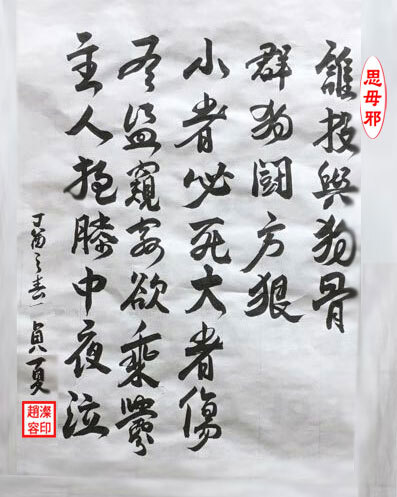 思毋邪
誰投與狗骨
群狗鬪方狠
小者必死大者傷
有盜窺窬欲乘釁
主人抱膝中夜泣
丁酉之春 貞夏
澯印
趙容